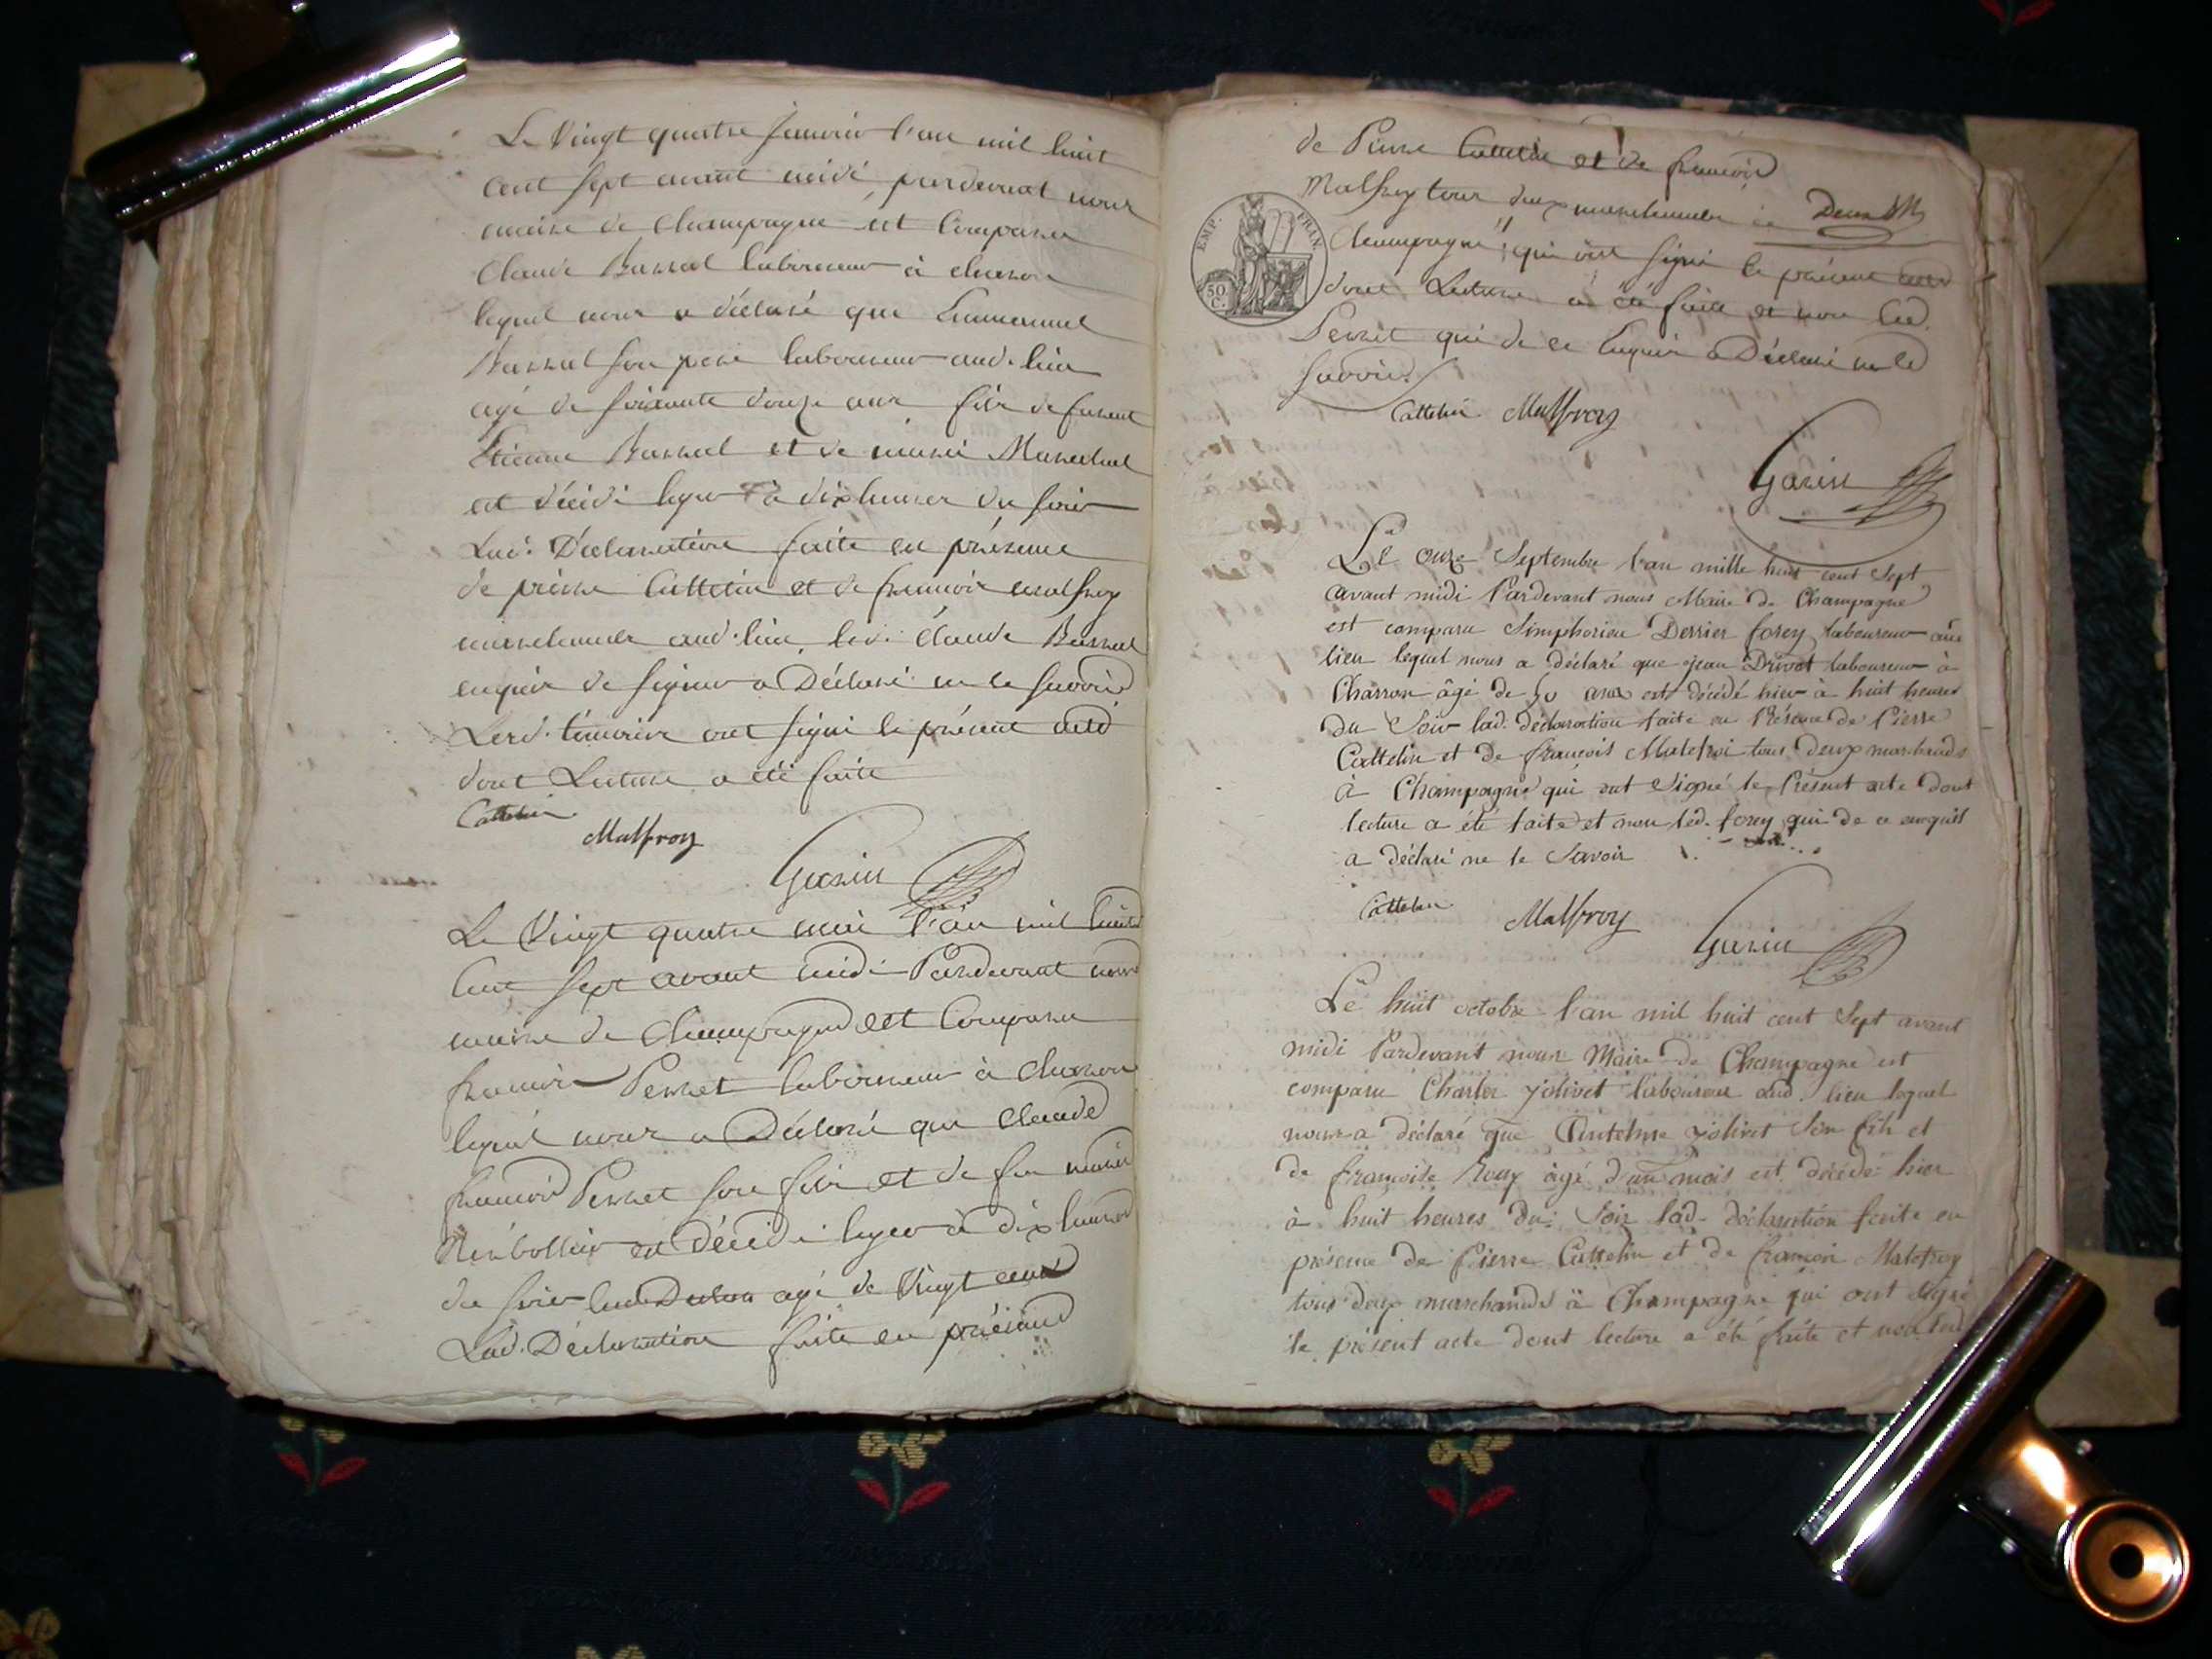 Le Vingt quatre Janvier l'an mil huit
cent sept avant midi pardevant nous
maire de Champagne est Comparu
Claude Barral laboureur à charron
lequel nous a déclaré que Emmanuel
Barral son pere laboureur aud. lieu
agé de soixante douze ans fils de furent
Etienne Barral et de marie Marechal
est décédé hyer à dix heures du soir
Lad. Déclaration faite en présence
de pierre Cattelin et de francois malfroy
marchands aud. lieu, led. Claude Barral
enquis de signer a Déclaré ne le savoir
Lesd. témoins ont signé le présent acte
dont Lecture a été faite
Cattelin
Malfroy
Garin
Le Vingt quatre mai l'an mil huit
Cent sept avant midi Pardevant nous
maire de Champagne est Comparu
francois Perret laboureur à charron
lequel nous a Déclaré que Claude
francois Perret son fils et de feu marie
est décédé hyer à dix heures
du soir agé de Vingt ans
Lad. Déclaration faite en présence
de Pierre Cattelin et de francois
Malfroy tous deux marchands à
Champagne qui ont signé le présent acte
EMP. FRAN.
50 C.
dont Lecture a été faite et non led.
Perret qui de ce Enquis a Déclaré ne le
savoir
Cattelin Malfroy
Garin
Le onze Septembre l'an mille huit cent Sept
avant midi Pardevant nous Maire de Champagne
est comparu Simphorien Derrier forey laboureur aud
lieu lequel nous a déclaré que jean Drivet laboureur à
Charron âgé de 50 ans est décédé hier à huit heures
du Soir lad. déclaration faite en Présence de Pierre
Cattelin et de francois Malefroi tous deux marchands
à Champagne qui ont Signé le Présent acte dont
lecture a été faite et non led. forey qui de ce enquis
a déclaré ne le Savoir
Cattelin Malfroy Garin
Le huit octobre l'an mil huit cent Sept avant
midi Pardevant nous Maire de Champagne est
comparu Charles jolivet laboureur aud. lieu lequel
nous a déclaré que Antelme jolivet Son fils et
de francoise Roux âgé d'un mois est décédé hier
à huit heures du Soir lad. déclaration faite en
présence de Pierre Cattelin et de francois Malefroy
tous deux marchands à Champagne qui ont signé
le présent acte dont lecture a été faite et non led